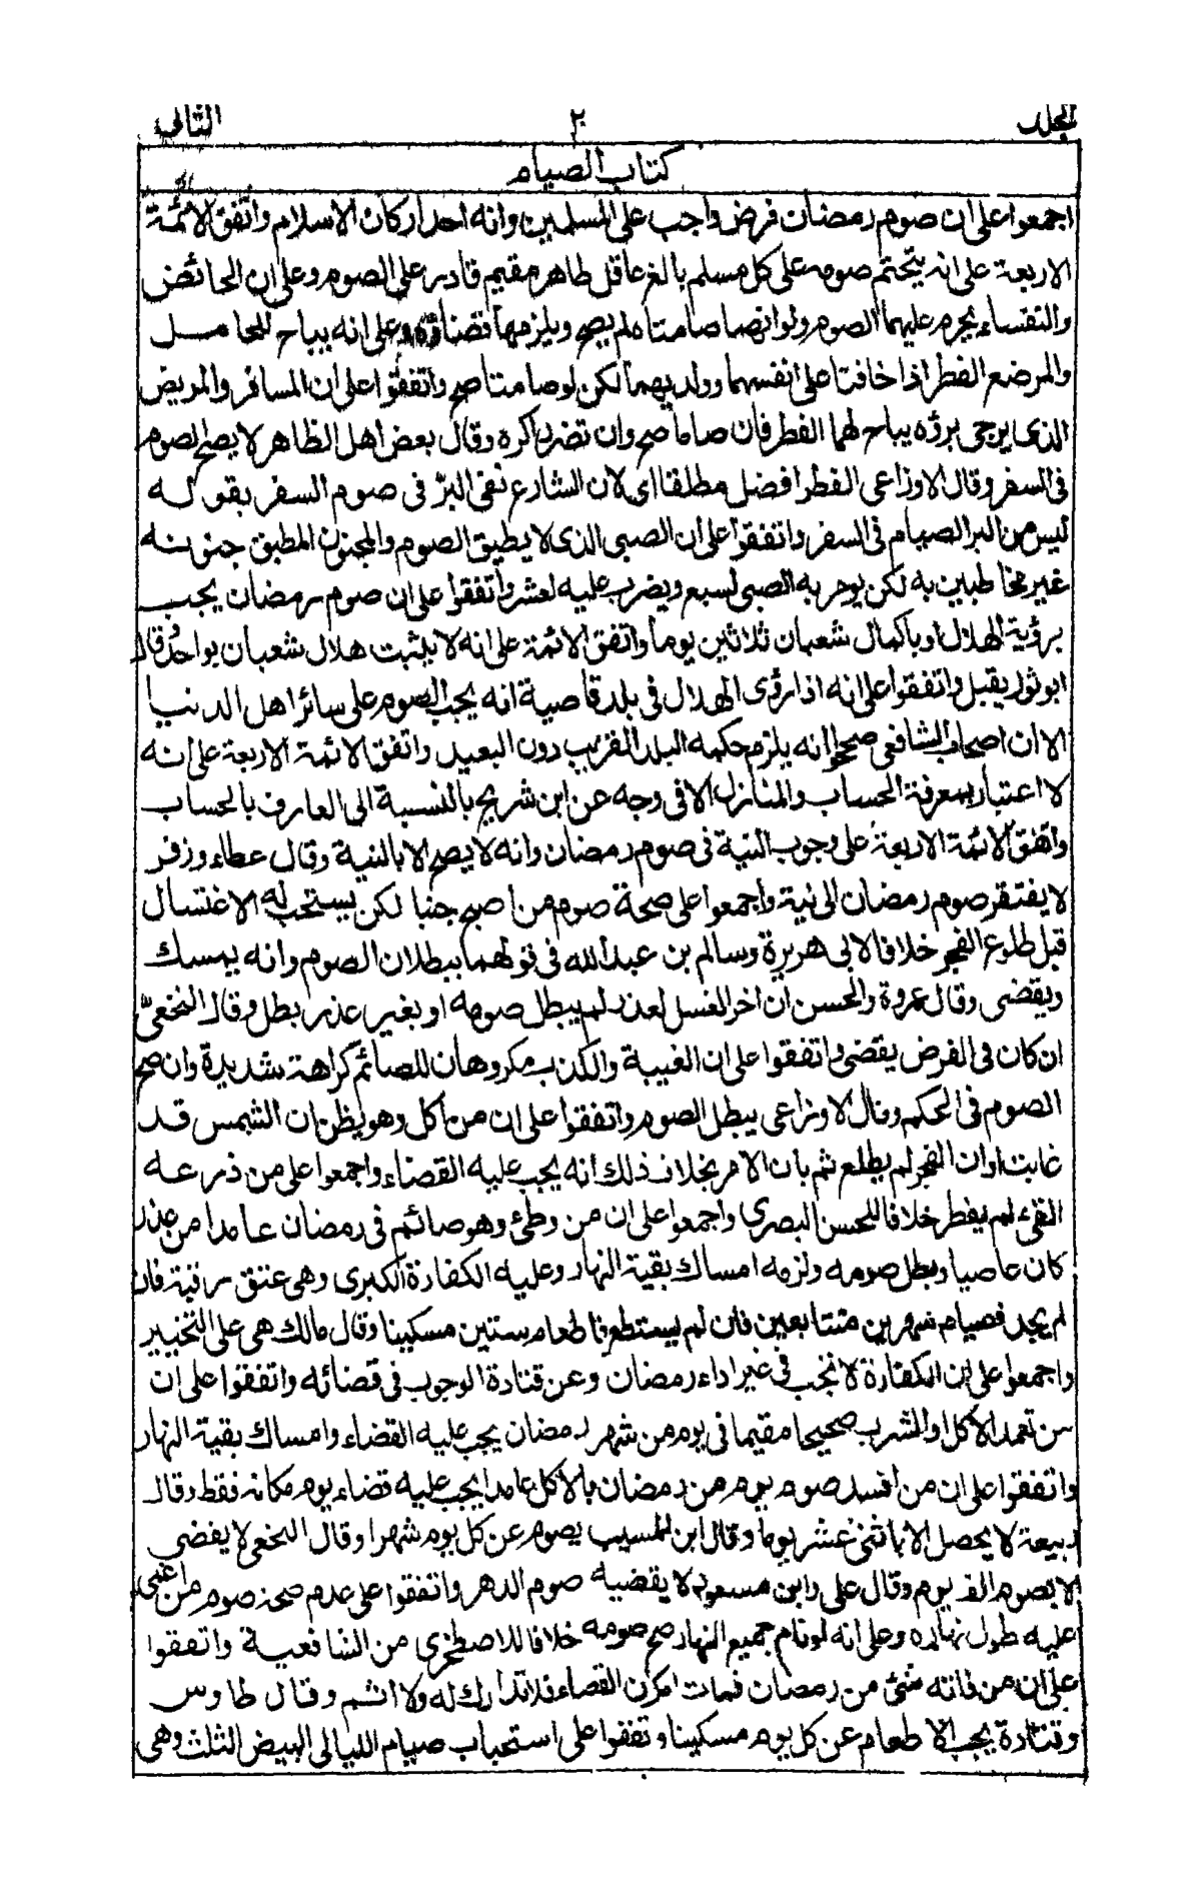 المجلد ٢ الثانى
كتاب الصيام
اجمعوا على ان صوم رمضان فرض واجب على المسلمين وانه احد اركان الاسلام واتفق الائمة
الاربعة على انه يتحتم صومه على كل مسلم بالغ عاقل طاهر مقيم قادر على الصوم وعلى ان الحائض
والنفساء يحرم عليهما الصوم ولو انهما صامتا لم يصح ويلزمهما قضاؤه وعلى انه يباح للحامل
والمرضع الفطر اذا خافتا على انفسهما وولديهما لكن لو صامتا صح واتفقوا على ان المسافر والمريض
الذى يرجى برؤه يباح لهما الفطر فان صاما صح وان تضررا كره وقال بعض اهل الظاهر لا يصح الصوم
فى السفر وقال الاوزاعى الفطر افضل مطلقا اى لان الشارع نفى البر فى صوم السفر بقوله
ليس من البر الصيام فى السفر واتفقوا على ان الصبى الذى لا يطيق الصوم والمجنون المطبق جنونه
غير مخاطبين به لكن يومر به الصبى لسبع ويضرب عليه لعشر واتفقوا على ان صوم رمضان يجب
برؤية الهلال او باكمال شعبان ثلاثين يوما واتفق الائمة على انه لا يثبت هلال شعبان بواحد وقال
ابو ثور يقبل واتفقوا على انه اذا رؤى الهلال فى بلد قاصية انه يجب الصوم على سائر اهل الدنيا
الا ان اصحاب الشافعى صححوا انه يلزم حكمه البلد القريب دون البعيد واتفق الائمة الاربعة على انه
لا اعتبار بمعرفة الحساب والمنازل الا فى وجه عن ابن شريح بالنسبة الى العارف بالحساب
واتفق الائمة الاربعة على وجوب النية فى صوم رمضان وانه لا يصح الا بالنية وقال عطاء وزفر
لا يفتقر صوم رمضان الى نية واجمعوا على صحة صوم من اصبح جنبا لكن يستحب له الاغتسال
قبل طلوع الفجر خلافا لابى هريرة وسالم بن عبد الله فى قولهما ببطلان الصوم وانه يمسك
ويقضى وقال عروة والحسن ان اخر الغسل لعذر لم يبطل صومه او بغير عذر بطل وقال النخعى
ان كان فى الفرض يقضى واتفقوا على ان الغيبة والكذب مكروهان للصائم كراهة شديدة وان صح
الصوم فى الحكم وقال الاوزاعى يبطل الصوم واتفقوا على ان من اكل وهو يظن ان الشمس قد
غابت او ان الفجر لم يطلع ثم بان الامر بخلاف ذلك انه يجب عليه القضاء واجمعوا على من ذرعه
القئ لم يفطر خلافا للحسن البصرى واجمعوا على ان من وطئ وهو صائم فى رمضان عامدا من عذر
كان عاصيا وبطل صومه ولزمه امساك بقية النهار وعليه الكفارة الكبرى وهى عتق رقبة فان
لم يجد فصيام شهرين متتابعين فان لم يستطع فاطعام ستين مسكينا وقال مالك هى على التخيير
واجمعوا على ان الكفارة لا تجب فى غير اداء رمضان وعن قتادة الوجوب فى قضائه واتفقوا على ان
من تعمد الاكل او الشرب صحيحا مقيما فى يوم من شهر رمضان يجب عليه القضاء وامساك بقية النهار
واتفقوا على ان من افسد صوم يوم من رمضان بالاكل عامدا يجب عليه قضاء يوم مكانه فقط وقال
ربيعة لا يحصل الا باثنى عشر يوما وقال ابن المسيب يصوم عن كل يوم شهرا وقال النخعى لا يقضى
الا بصوم الف يوم وقال على وابن مسعود لا يقضيه صوم الدهر واتفقوا على عدم صحة صوم من اغمى
عليه طول نهاره وعلى انه لو نام جميع النهار صح صومه خلافا للاصطخرى من الشافعية واتفقوا
على ان من فاته شئ من رمضان فمات امكن القضاء فلا تدارك له ولا اثم وقال طاوس
وقتادة يجب الاطعام عن كل يوم مسكينا وتفقوا على استحباب صيام الليالى البيض الثلث وهى